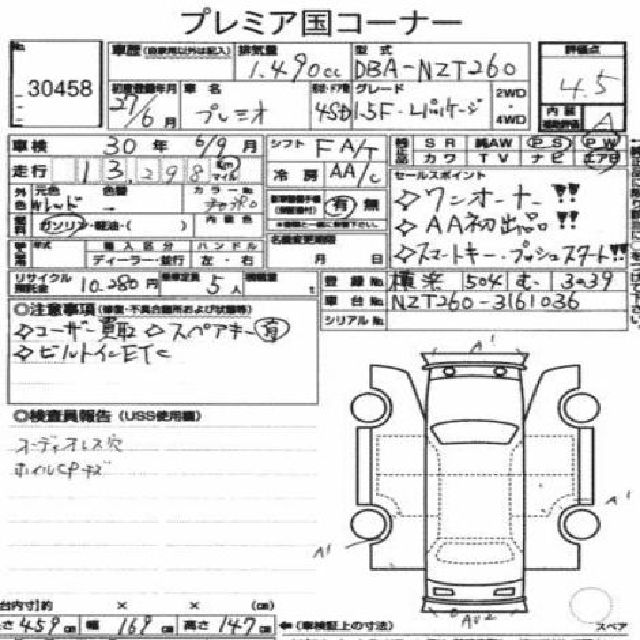 プレミア国コーナー
30458
車歴(自家用以外は記入) 排気量 型式 評価点
1.490cc DBA-NZT260 4.5
初度登録年月 車名 グレード 2WD・4WD
27/6月 プレミオ 4SD 1.5F・Lパッケージ 内装 A
車検 30年 6/9月 シフト FA/T SR AW PS PW
冷房 AA/C カワ TV ナビ エアB
走行 13.298 km マイル セールスポイント
外色 元色 色替 カラーNo.
有 無 ◇ワンオーナー!!
燃料 ガソリン・軽油・( ) 内装色 ◇AA初出品!!
名義変更期限 月 日 ◇スマートキー・プッシュスタート!!
年式 輸入区分 ハンドル
ディーラー・並行 左・右
リサイクル預託金 10.280円 乗車定員 5人 積載量 t
登録No. 横浜 504 む 3039
車台No. NZT260-3161036
シリアルNo.
◎注意事項(修復・不具合箇所および状態等)
◇ユーザー買取 ◇スペアキー有
◇ビルトインETC
◎検査員報告(USS使用欄)
オーディオレス穴
ホイルCPキズ
A1
A1
A1
スペア
台内寸]約 × × (cm)
さ 459cm 幅 169cm 高さ 147cm ←(車検証上の寸法)